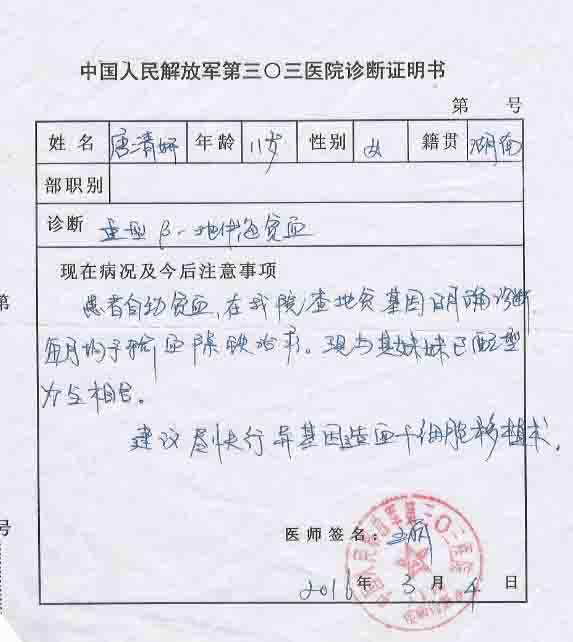 中国人民解放军第三〇三医院诊断证明书
第 号
姓名 唐清妍 年龄 11岁 性别 女 籍贯 湖南
部职别
诊断 重型β-地中海贫血
现在病况及今后注意事项
第
患者自幼贫血,在我院查地贫基因明确诊断,
每月均予输血除铁治疗。现与其妹妹已配型
为全相合。
建议尽快行异基因造血干细胞移植术。
号
医师签名:
2016年3月4日
中国人民解放军第三〇三医院